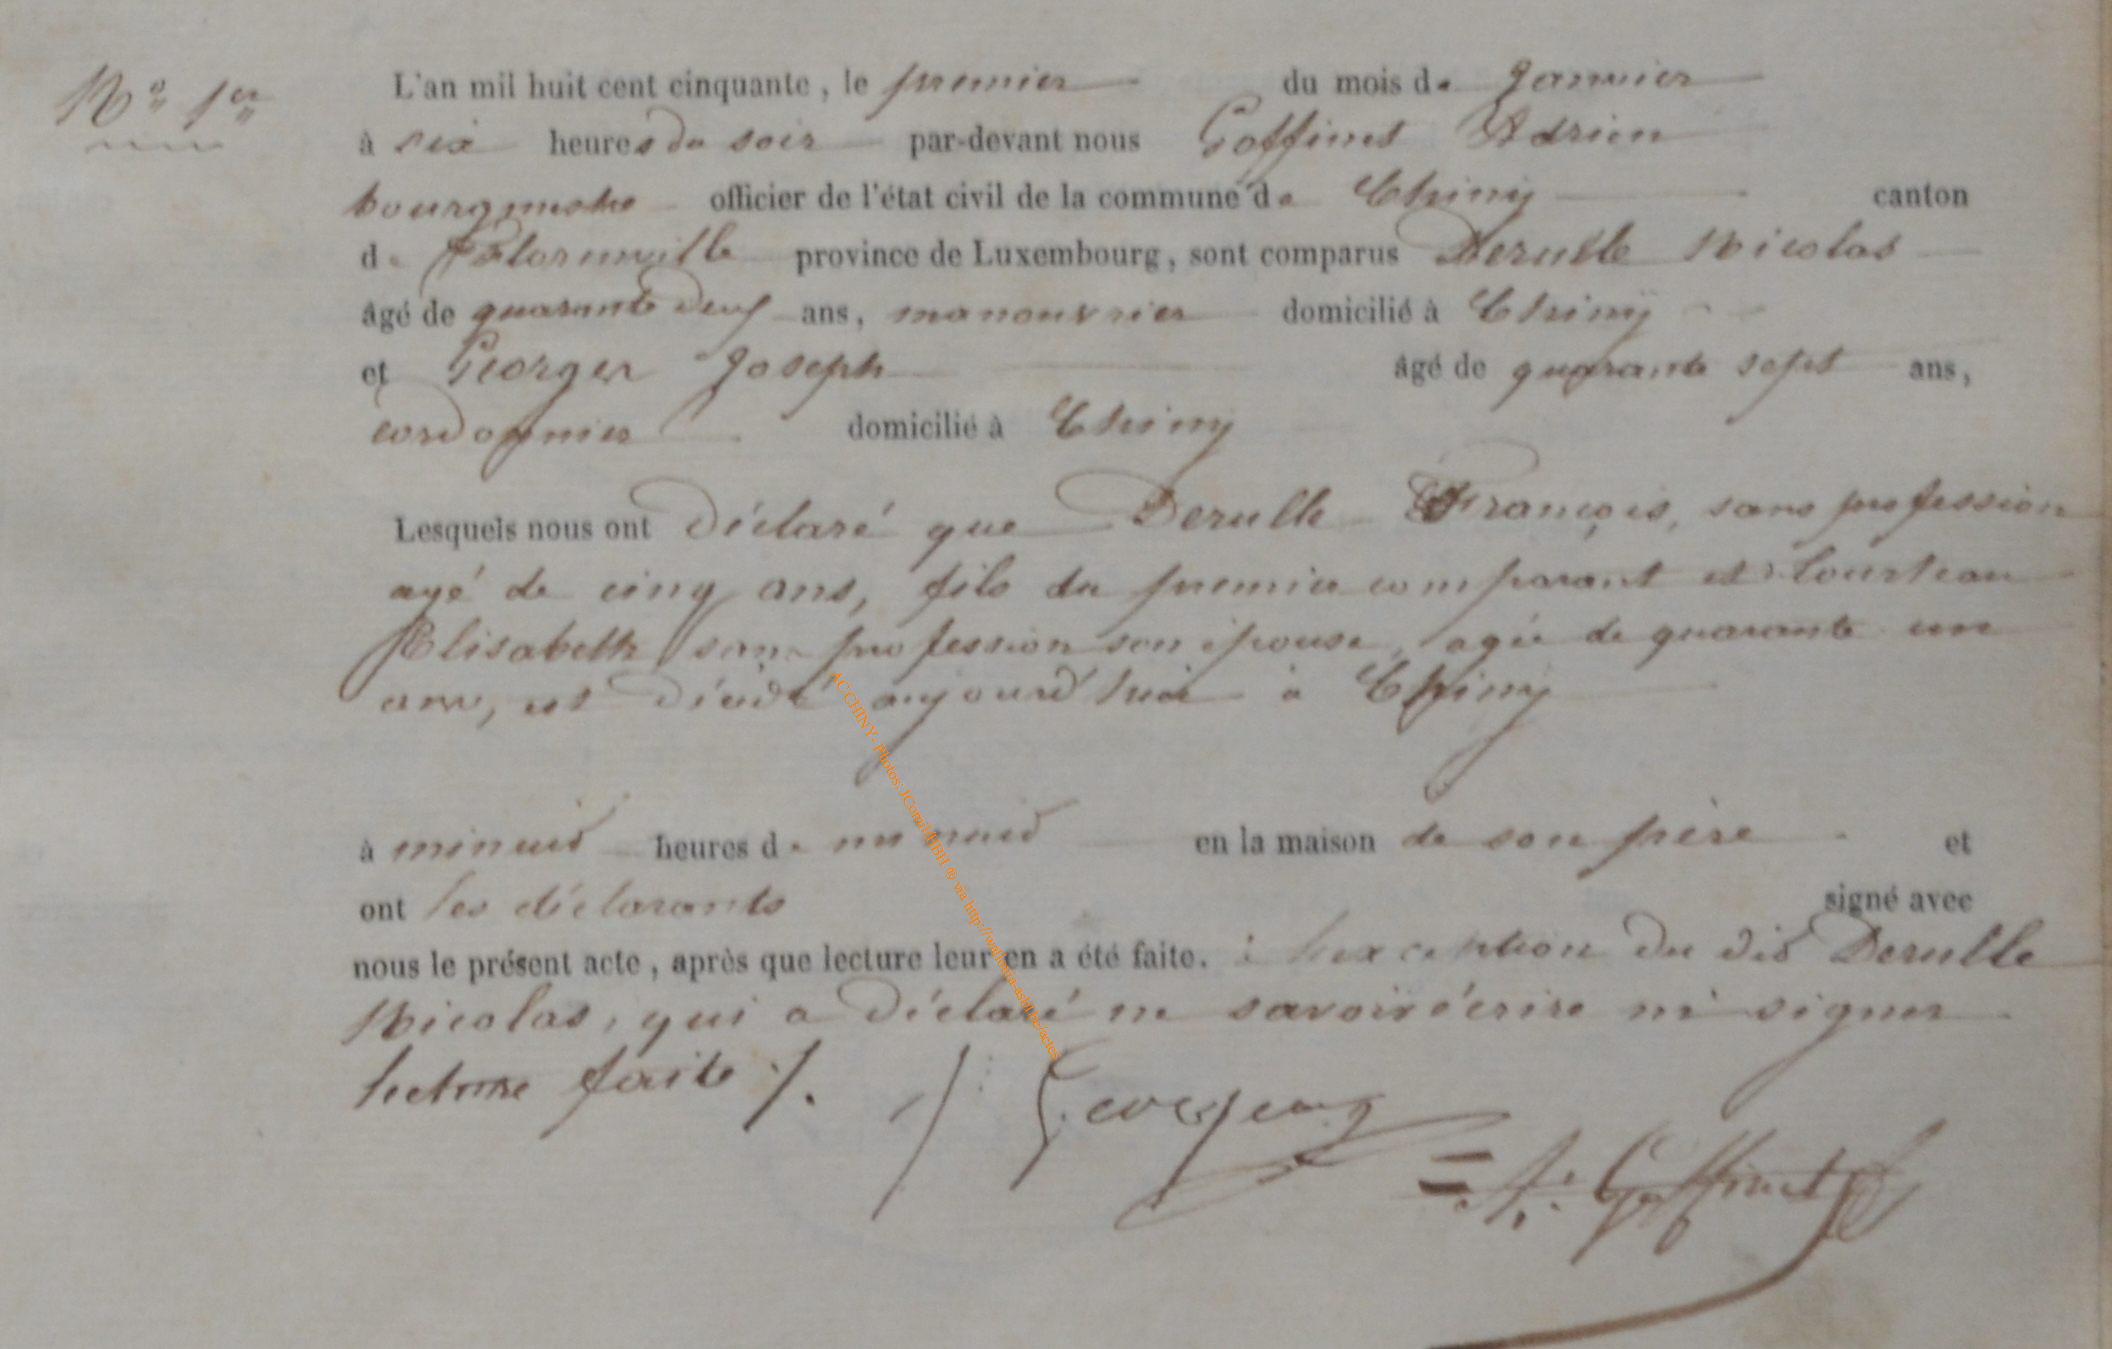 N° 1er
L'an mil huit cent cinquante, le premier du mois de Janvier
à six heures du soir par-devant nous Goffinet Adrien
bourgmestre officier de l'état civil de la commune de Chiny canton
de Florenville province de Luxembourg, sont comparus Derulle Nicolas
âgé de quarante neuf ans, manouvrier domicilié à Chiny
et Georges Joseph âgé de quarante sept ans,
cordonnier domicilié à Chiny
Lesquels nous ont déclaré que Derulle François, sans profession
agé de cinq ans, fils du premier comparant et
Elisabeth sans profession son épouse, agée de quarante un
ans, est décédé aujourd'hui à Chiny
à minuit heures de minuit en la maison de son père et
ont les déclarants signé avec
nous le présent acte, après que lecture leur en a été faite. à l'exception du dit Derulle
Nicolas, qui a déclaré ne savoir écrire ni signer
lecture faite ./.
J. Georges
A. Goffinet
ACCHINY - Photos